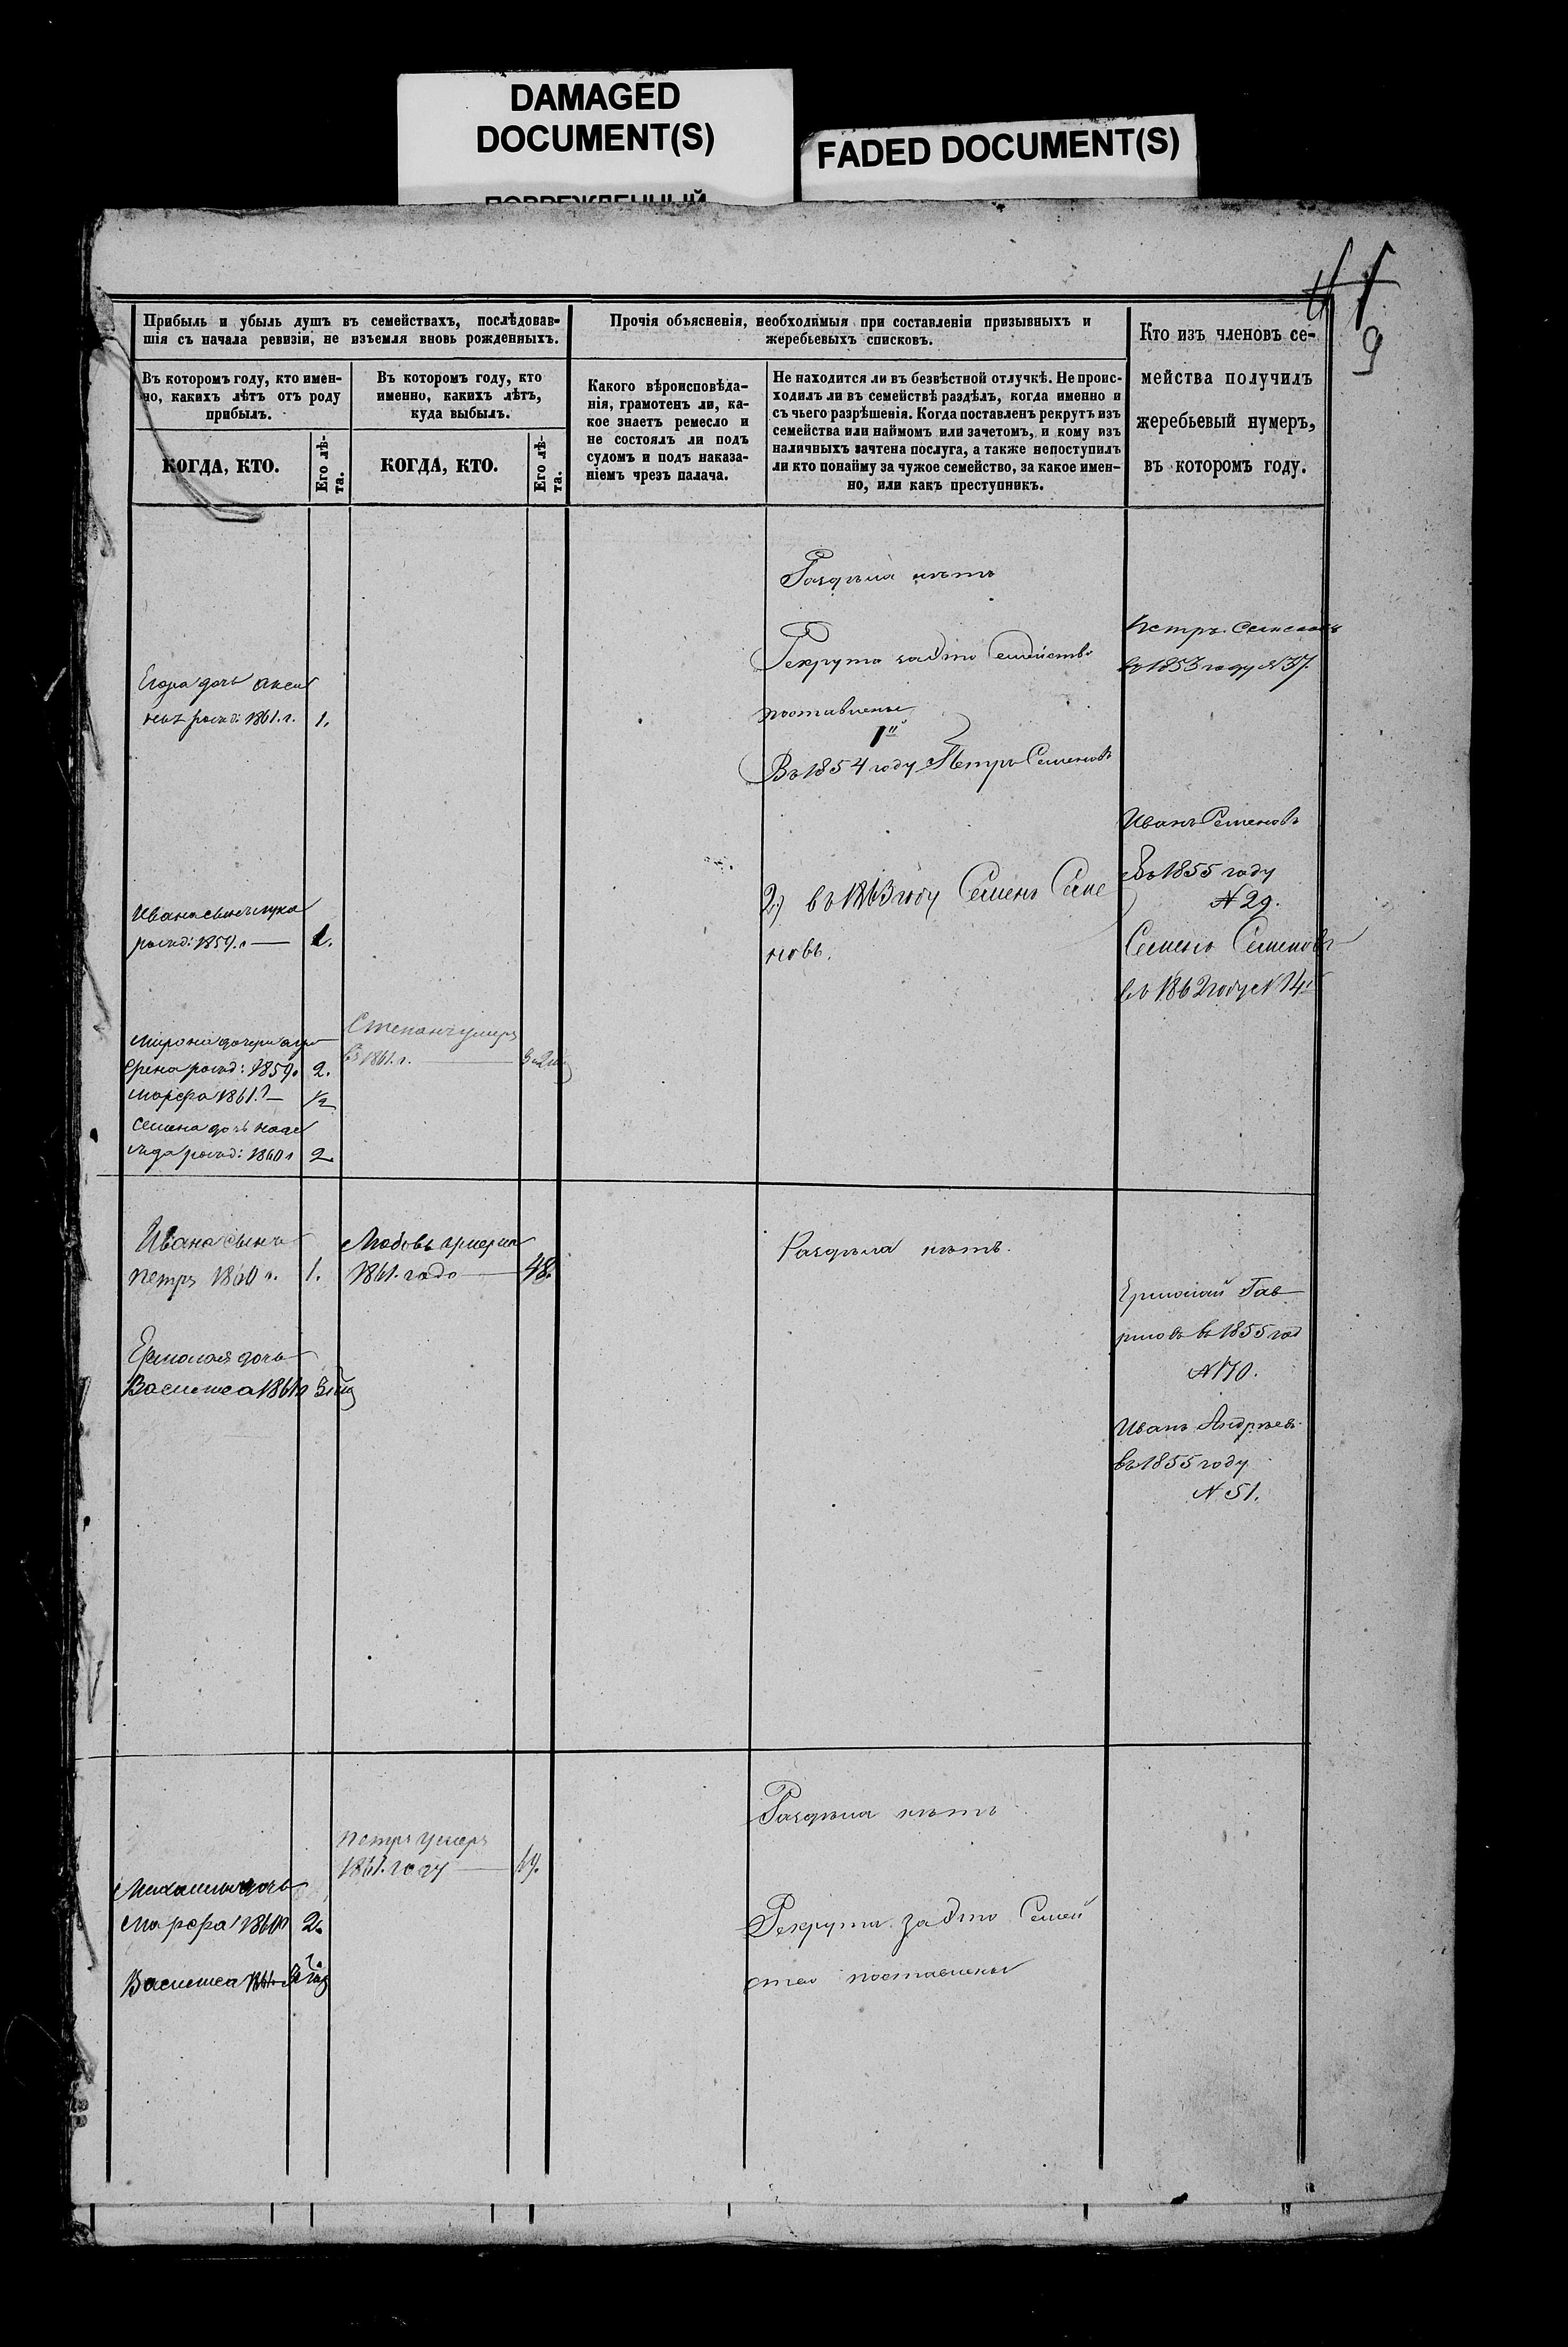 DAMAGED
DOCUMENT(S)
FADED DOCUMENT(S)
9
Прибыль и убыль душъ въ семействахъ, послѣдовав-
шія съ начала ревизіи, не изъемля вновь рожденныхъ.
Прочія объясненія, необходимыя при составленіи призывныхъ и
жеребьевыхъ списковъ.
Кто изъ членовъ се-
мейства получилъ
жеребьевый нумеръ,
въ которомъ году.
Въ которомъ году, кто имен-
но, какихъ лѣтъ отъ роду
прибылъ.
Въ которомъ году, кто
именно, какихъ лѣтъ,
куда выбылъ.
Какого вѣроисповѣда-
нія, грамотенъ ли, ка-
кое знаетъ ремесло и
не состоялъ ли подъ
судомъ и подъ наказа-
ніемъ чрезъ палача.
Не находится ли въ безвѣстной отлучкѣ. Не проис-
ходилъ ли въ семействѣ раздѣлъ, когда именно и
съ чьего разрѣшенія. Когда поставленъ рекрутъ изъ
семейства или наймомъ или зачетомъ, и кому изъ
наличныхъ зачтена послуга, а также непоступилъ
ли кто понайму за чужое семейство, за какое имен-
но, или какъ преступникъ.
КОГДА, КТО.
Его лѣ-
та.
КОГДА, КТО.
Его лѣ-
та.
Раздѣла нѣтъ
Рекрута за это Семейство
поставлены
1й
Въ 1854 году Петръ Семеновъ
2) въ 1863 году Семенъ Семе
новъ.
Петръ Семеновъ
въ 1853 году N 37.
Иванъ Семеновъ
Въ 1855 году
N 29.
Семенъ Семеновъ
въ 1862 году N 14
Егора дочь Аксинья
рожд: 1861. г. 1.
Ивана сынъ Лука
рожд: 1859. г — 1.
Мирона дочери
рожд: 1859. 2.
Марфа 1861. г — 1/2
Семена дочь
рожд: 1860 г 2.
Степанъ умеръ
въ 1861. г.
Ивана сынъ
Петръ 1860 г. 1.
Ермолая дочь
Василиса 1861 г
Любовь умерла
1861. года — 48.
Раздѣла нѣтъ.
Ермолай Гав
риловъ въ 1855 год
N 170.
Иванъ Андреевъ
въ 1855 году
N 51.
Раздѣла нѣтъ
Петръ умеръ
1861. году — 69.
дочь
Марфа 1860 г 2.
Василиса
Рекрута за это Семей
ство поставлены